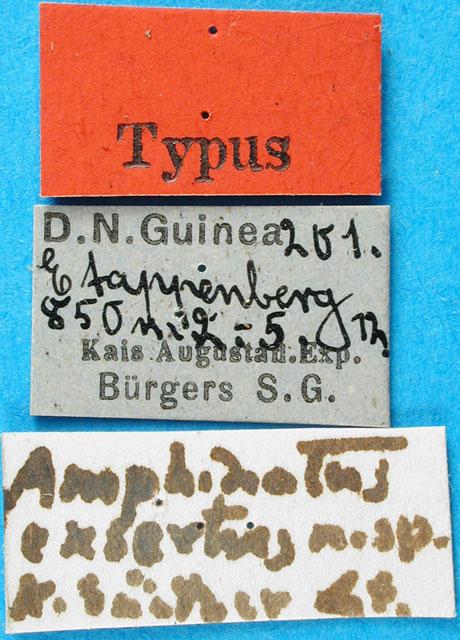 Typus
D.N.Guinea 201.
Etappenberg
850 m. 2.-5.
Kais Augustafl.Exp.
Bürgers S.G.
Amphinotus
exsertus n.sp.
K. Günther